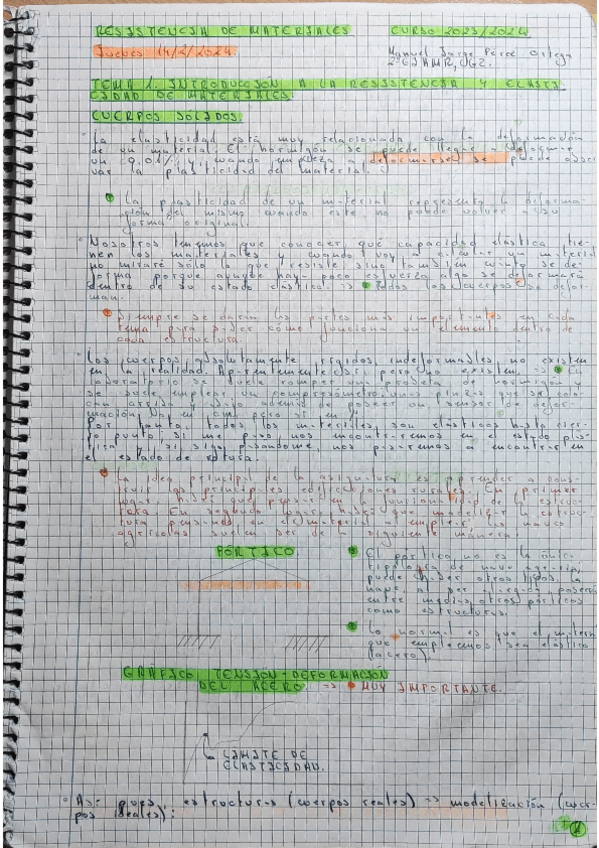 RESISTENCIA DE MATERIALES CURSO 2023/2024
Jueves 14/2/2024. Manuel Jorge
2º GIAMR, UGR.
TEMA 1. INTRODUCCIÓN A LA RESISTENCIA Y ELASTI
CIDAD DE MATERIALES.
CUERPOS SÓLIDOS.
La elasticidad está muy relacionada con la deformación
de un material. El hormigón se puede llegar a deformar
un 0,01% y cuando empieza a deformarse se puede obser
var la plasticidad del material.
La plasticidad de un material representa la deforma-
ción del mismo cuando este no puede volver a su
forma original.
Nosotros tenemos que conocer qué capacidad elástica tie-
nen los materiales y cuando voy a un material
no miraré sólo lo que resiste sino también cuánto se de-
forma porque aunque haya poco esfuerzo algo se deformará
dentro de su estado elástico. => Todos los cuerpos se defor-
man.
Siempre se darán las partes más importantes en cada
tema para poder cómo funciona un elemento dentro de
cada estructura.
Los cuerpos absolutamente rígidos, indeformables, no existen
en la realidad. Aparentemente sí, pero no existen. => En
laboratorio se suele romper una probeta de hormigón y
se suele emplear un compresómetro. Una pinza que se colo-
can arriba y abajo además de poseer un sensor de defor-
mación.
Por tanto, todos los materiales son elásticos hasta cier-
to punto, si me paso, nos encontraremos en el estado plás-
tico y si sigo pasándome, nos pasaremos a encontrar en
el estado de rotura.
La idea principal de la asignatura es aprender a cons-
truir las principales edificaciones rurales. En primer
lugar, hay que pensar en la funcionalidad de la estruc-
tura. En segundo lugar, habrá que modelizar la estruc-
tura pensando en el material a emplear. Las naves
agrícolas suelen ser de la siguiente manera:
PÓRTICO
El pórtico no es la única
tipología de nave agraria,
puede haber otros tipos. La
nave, al ser alargada, poseerá
entre medias otros pórticos
como estructuras.
Lo normal es que el material
que empleemos sea elástico
(acero).
GRÁFICO TENSIÓN-DEFORMACIÓN
DEL ACERO. => MUY IMPORTANTE.
LÍMITE DE
ELASTICIDAD.
Así pues, estructuras (cuerpos reales) => modelización (cuer-
pos ideales):